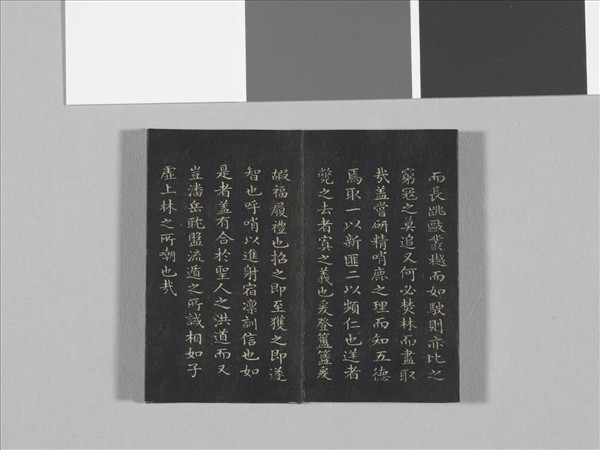 而長跳叢樾而如駛則亦比之
窮寇之莫追又何必焚林而盡取
哉蓋嘗研精哨鹿之理而知五德
焉取一以新匪二以頻仁也者
斃之去者寘之義也爰登簠簋爰
嘏福履禮也招之即至獲之即遂
智也呼哨以進射宿凜訓信也如
是者蓋有合於聖人之洪道而又
豈潘岳耽盤流遁之所誡相如子
虛上林之所嘲也哉